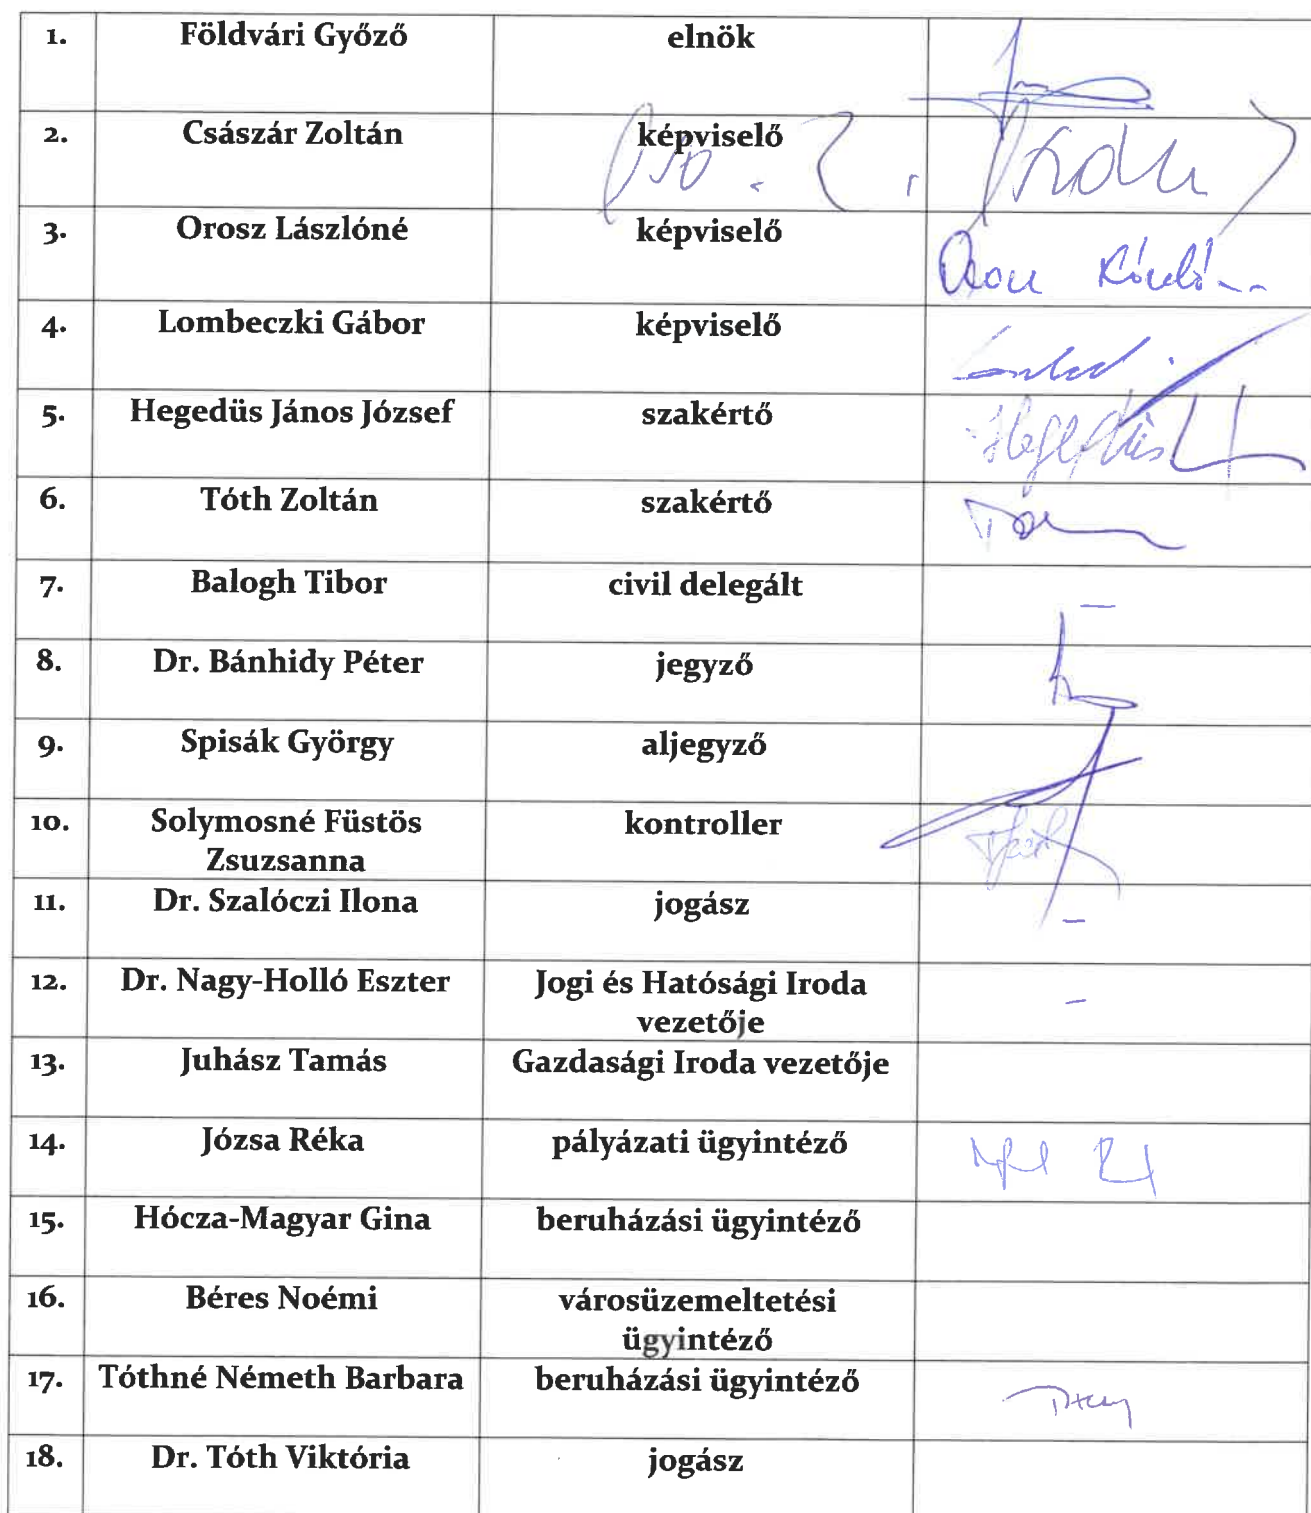 1. Földvári Győző elnök
2. Császár Zoltán képviselő
3. Orosz Lászlóné képviselő
4. Lombeczki Gábor képviselő
5. Hegedüs János József szakértő Hegedüs
6. Tóth Zoltán szakértő
7. Balogh Tibor civil delegált –
8. Dr. Bánhidy Péter jegyző
9. Spisák György aljegyző
10. Solymosné Füstös kontroller
Zsuzsanna
11. Dr. Szalóczi Ilona jogász –
12. Dr. Nagy-Holló Eszter Jogi és Hatósági Iroda –
vezetője
13. Juhász Tamás Gazdasági Iroda vezetője
14. Józsa Réka pályázati ügyintéző
15. Hócza-Magyar Gina beruházási ügyintéző
16. Béres Noémi városüzemeltetési
ügyintéző
17. Tóthné Németh Barbara beruházási ügyintéző
18. Dr. Tóth Viktória jogász